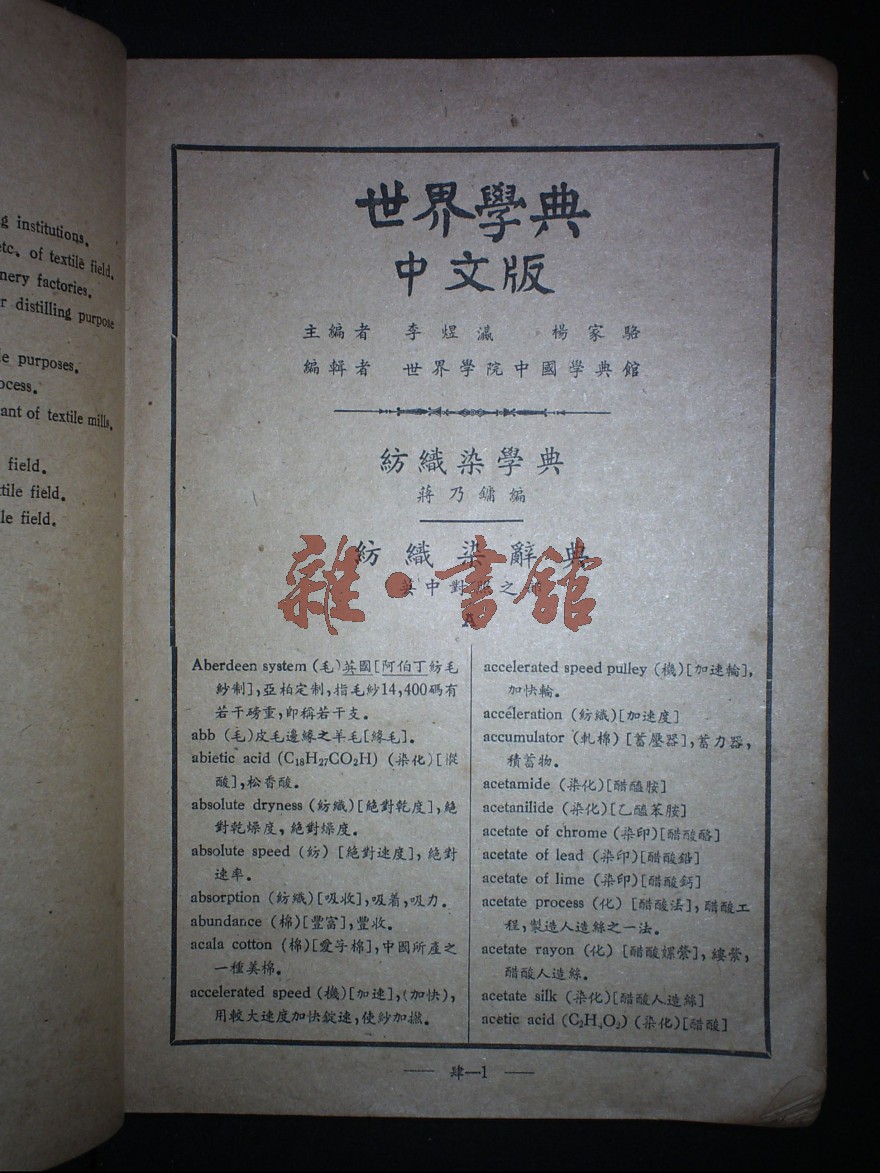 g institutions.
etc. of textile field.
nery factories.
r distilling purpose
le purposes.
ocess.
ant of textile mills.
field.
tile field.
le field.
世界學典
中文版
主編者 李煜瀛 楊家駱
編輯者 世界學院中國學典館
紡織染學典
蔣乃鏞編
紡織染辭典
英中對照之部
雜·書館
A
Aberdeen system (毛)英國[阿伯丁紡毛
紗制],亞柏定制,指毛紗14,400碼有
若干磅重,卽稱若干支。
abb (毛)皮毛邊緣之羊毛[緣毛]。
abietic acid (C₁₈H₂₇CO₂H) (染化)[
酸],松香酸。
absolute dryness (紡織)[絕對乾度],絕
對乾燥度,絕對燥度。
absolute speed (紡) [絕對速度],絕對
速率。
absorption (紡織)[吸收],吸着,吸力。
abundance (棉)[豐富],豐收。
acala cotton (棉)[愛字棉],中國所產之
一種美棉。
accelerated speed (機)[加速],(加快),
用較大速度加快錠速,使紗加撚。
accelerated speed pulley (機)[加速輪],
加快輪。
acceleration (紡織)[加速度]
accumulator (軋棉) [蓄壓器],蓄力器,
積蓄物。
acetamide (染化)[醋醯胺]
acetanilide (染化)[乙醯苯胺]
acetate of chrome (染印)[醋酸酪]
acetate of lead (染印)[醋酸鉛]
acetate of lime (染印)[醋酸鈣]
acetate process (化) [醋酸法],醋酸工
程,製造人造絲之一法。
acetate rayon (化) [醋酸嫘縈],縷縈,
醋酸人造絲。
acetate silk (染化)[醋酸人造絲]
acetic acid (C₂H₄O₂) (染化)[醋酸]
肆—1